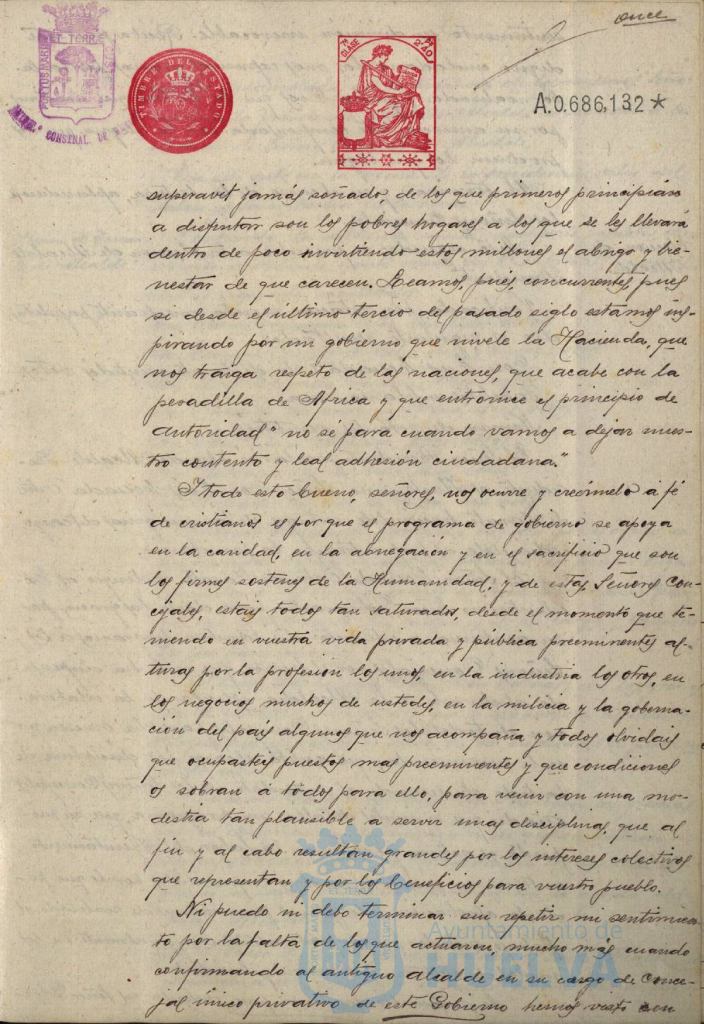 once
PORTUS MARIS ET TERRE CUSTODIA
CONSTNAL. DE
TIMBRE DEL ESTADO
7ª CLASE 2'40 PTS
A.0.686,132*
superavit jamás soñado, de los que primeros principiáro
a disfrutar son los pobres hogares a los que se les llevará
dentro de poco invirtiendo estos millones el abrigo y bie-
nestar de que carecen. Seamos, pues, concurrentes, pues
si desde el último tercio del pasado siglo estamos sus-
pirando por un gobierno que nivele la Hacienda, que
nos traiga respeto de las naciones, que acabe con la
pesadilla de Africa y que entronice el principio de
autoridad" no sé para cuando vamos a dejar nues-
tro contento y leal adhesión ciudadana."
Y todo esto bueno, señores, nos ocurre y creérmelo á fé
de cristianos es por que el programa de gobierno se apoya
en la caridad, en la abnegación y en el sacrificio que son
los firmes sostenes de la Humanidad, y de estos, Señores Con-
cejales, estais todos tan saturados, desde el momento que te-
niendo en vuestra vida privada y pública preeminentes al-
turas por la profesion los unos, en la industria los otros, en
los negocios muchos de ustedes, en la milicia y la goberna-
ción del país algunos que nos acompaña y todos olvidais
que ocupasteis puestos mas preeminentes y que condiciones
os sobran á todos para ello, para venir con una mo-
destia tan plausible a servir unas disciplinas, que al
fin y al cabo resultan grandes por los intereses colectivos
que representan y por los beneficios para vuestro pueblo.
Ni puedo ni debo terminar sin repetir mi sentimien-
to por la falta de los que actuaron, mucho más cuando
confirmando al antiguo alcalde en su cargo de Conce-
jal único privativo de este Gobierno hemos visto con
Ayuntamiento de
HUELVA